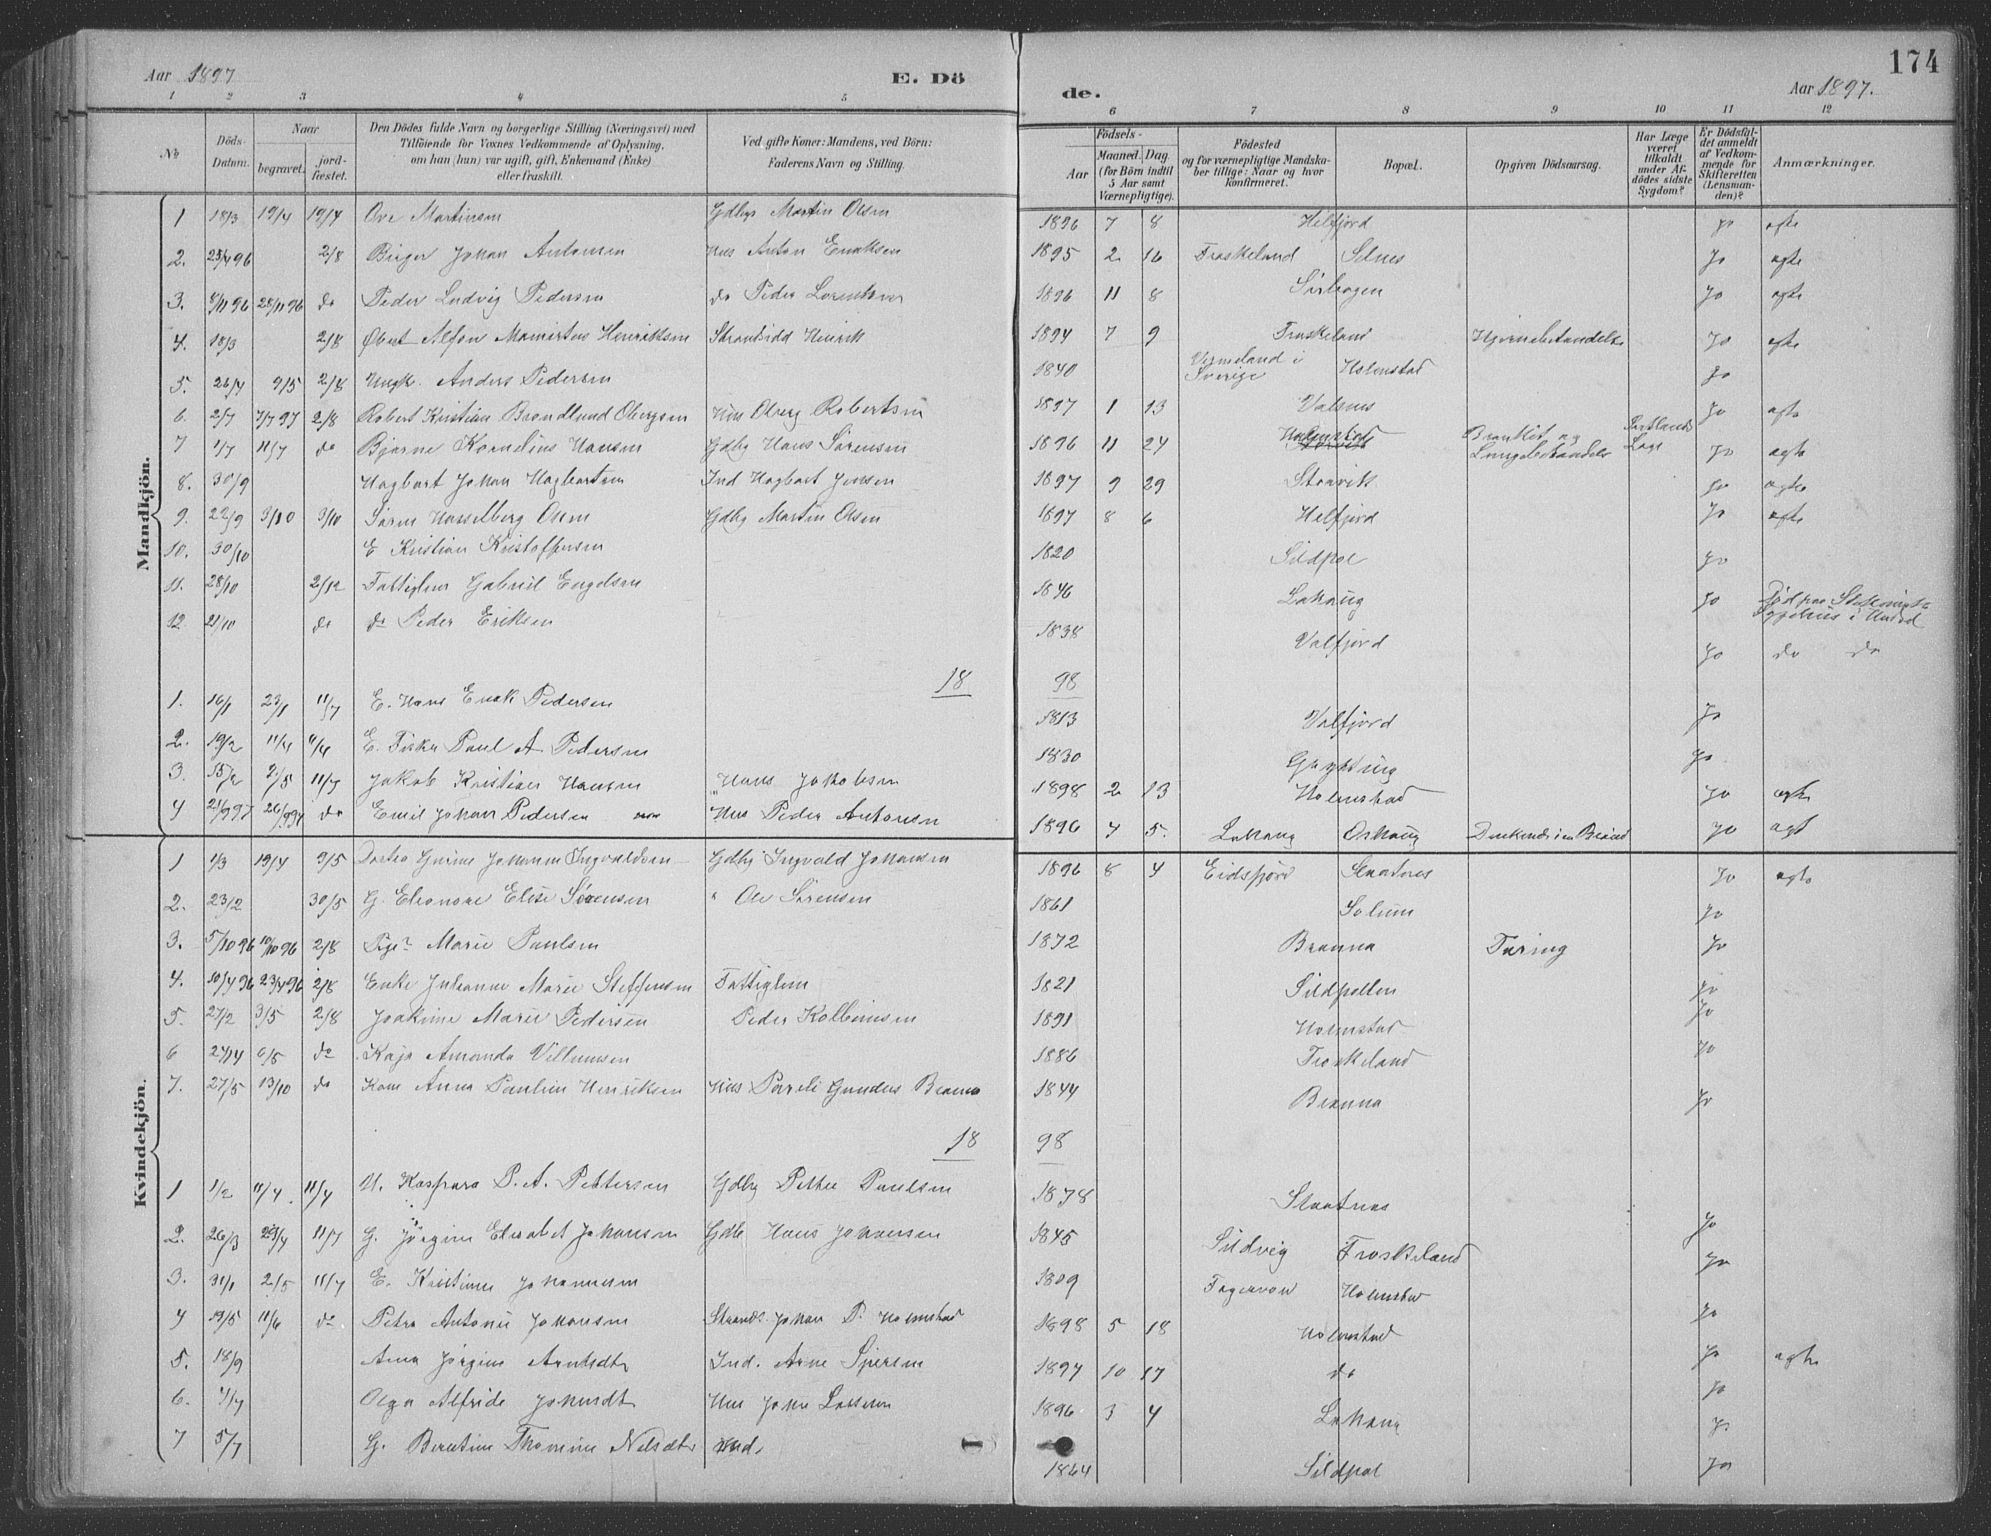 174
Aar 1897
E. Dö
de.
Aar 1897.
1 2 3 4 5 6 7 8 9 10 11 12
No
Döds-Datum.
Naar
begravet.
jord-fæstet.
Den Dödes fulde Navn og borgerlige Stilling (Næringsvei) med
Tilföiende for Voxnes Vedkommende af Oplysning,
om han (hun) var ugift, gift, Enkemand (Enke)
eller fraskilt.
Ved gifte Koner: Mandens, ved Börn:
Faderens Navn og Stilling.
Födsels-
Aar
Maaned. Dag
(for Börn indtil
5 Aar samt
Værnepligtige).
Födested
og for værnepligtige Mandska-
ber tillige: Naar og hvor
konfirmeret.
Bopæl.
Opgiven Dödsaarsag.
Har Læge
været
tilkaldt
under Af-
dödes sidste
Sygdom?
Er Dödsfal-
det anmeldt
af Vedkom-
mende for
Skifteretten
(Lensman-
den)?
Anmærkninger.
Mandkjön.
1 18/3 19/4 19/4 Ove Martinsen Gdbgr Martin Olsen 1896 7 8 Helfjord jo ægte
2. 25/4 96 2/8 Birger Johan Antonsen Hus Anton Enoksen 1895 2 16 Froskeland Selnes jo ægte
3. 8/11 96 28/11 96 do Peder Ludvig Pedersen do Peder Lorentsen 1896 11 8 jo ægte
4. 18/3 2/8 Henriksen Strandsidd Henrik 1894 7 9 Froskeland Hjernebetændelse jo ægte
5. 26/4 9/5 2/8 Ungk. Anders Pedersen 1840 Vermeland i Sverige Holmstad jo
6. 2/7 7/7 97 2/8 Robert Kristian Brandlund Obergsen Hus Oberg Robertsen 1897 1 13 Valsnes jo ægte
7 1/7 11/7 do Bjarne Kornelius Hansen Gdbg Hans Sörensen 1896 11 24 Holmstad Bronkit og Lungebetændelse Læge jo ægte
8. 30/9 Hagbart Johan Hagbartsen Ind Hagbart Jensen 1897 9 29 Straavik jo ægte
9. 22/9 3/10 3/10 Sören Hasselberg Olsen Gdbg Martin Olsen 1897 8 6 Helfjord jo ægte
10. 30/10 E Kristian Kristoffersen 1820 Sildpol jo
11. 28/10 2/12 Fattiglem Gabriel Engelsen 1846 Lahaug jo
12. 21/10 do do Peder Eriksen 1838 Valfjord jo do do
18 98
1. 16/1 23/1 11/7 E. Hans Enok Pedersen 1813 Valfjord jo
2. 19/2 11/4 11/4 E. Fisker Paul A. Pedersen 1830 jo
3. 15/2 2/5 11/7 Jakob Kristian Hansen Hans Jakobsen 1898 2 13 Holmstad jo ægte
4 21/9 97 26/9 97 do Emil Johan Pedersen Hus Peder Antonsen 1896 4 5. Lahaug Oshaug Druknede i en Brönd jo ægt
Kvindekjön.
1 1/3 19/4 9/5 Ingvaldsen Gdbg Ingvald Johansen 1896 8 4 Eidsfjord Slaatnes jo ægte
2. 23/2 30/5 G. Eleonore Elise Sörensen " Ole Sörensen 1861 Solum jo
3. 5/10 96 10/10 96 2/8 Pige Marie Paulsen 1872 Branna Tæring jo
4. 10/4 96 23/4 96 2/8 Enke Johanne Marie Steffensen Fattiglem 1821 Sildpollen jo
5. 27/2 3/5 2/8 Joakime Marie Pedersen Peder Kolbeinsen 1891 Holmstad jo
6 24/4 6/5 do Kaja Amanda Villumsen 1886 Froskeland jo
7. 27/5 13/10 do Kone Anna Pauline Henriksen Hus Branna 1844 Branna jo
18 98
1 1/2 11/4. 11/4 U. Kaspara P. A. Pettersen Gdbg Petter Paulsen 1878 Slaatnes jo
2. 26/3 23/4 11/7 G. Jörgine Elisabet Johansen Gdb Hans Johansen 1845 Sildvig Froskeland jo
3. 31/1 2/5 11/7 E. Kristine Johannesen 1809 Holmstad jo
4 19/5 11/6 do Petra Antonie Johansen Strands. Johan P. Holmstad 1898 5 18 Holmstad jo ægte
5. 18/9 Anna Jörgine Arntsdtr Ind. Arne 1897 10 17 do jo
6. 4/7 Olga Alfride Johnsdtr Hus John Larsen 1896 3 4 Lahaug jo
7 5/7 G. Berntine Thomine Nelsdtr Ind. 1864 Sildpol jo